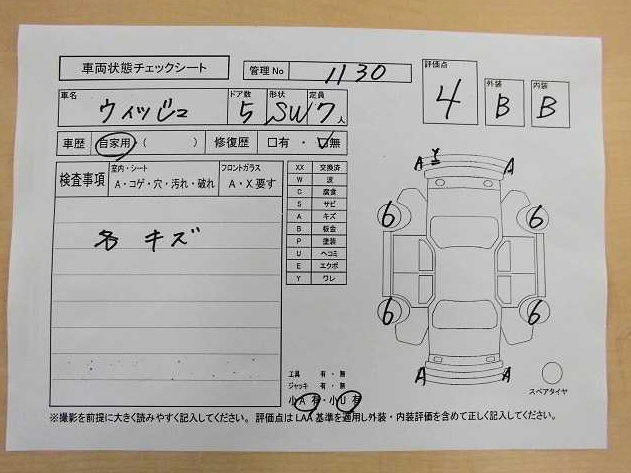 車両状態チェックシート
管理No 1130
評価点 4
外装 B
内装 B
車名 ウィッシュ
ドア数 5
形状 SW
定員 7人
車歴 自家用・( )
修復歴 □有・□無
検査事項
室内・シート
A・コゲ・穴・汚れ・破れ
フロントガラス
A・X要す
各 キズ
XX 交換済
W 波
C 腐食
S サビ
A キズ
B 板金
P 塗装
U ヘコミ
E エクボ
Y ワレ
A Y A
6 6
6 6
A A
スペアタイヤ
工具 有・無
ジャッキ 有・無
小A有・小U有
※撮影を前提に大きく読みやすく記入してください。 評価点はLAA基準を適用し外装・内装評価を含めて正しく記入してください。